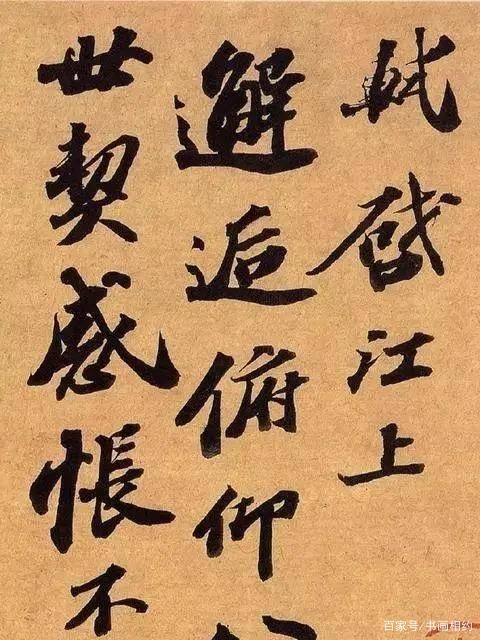 軾啓江上
邂逅俯仰
世契感悵不
百家号/书画相约